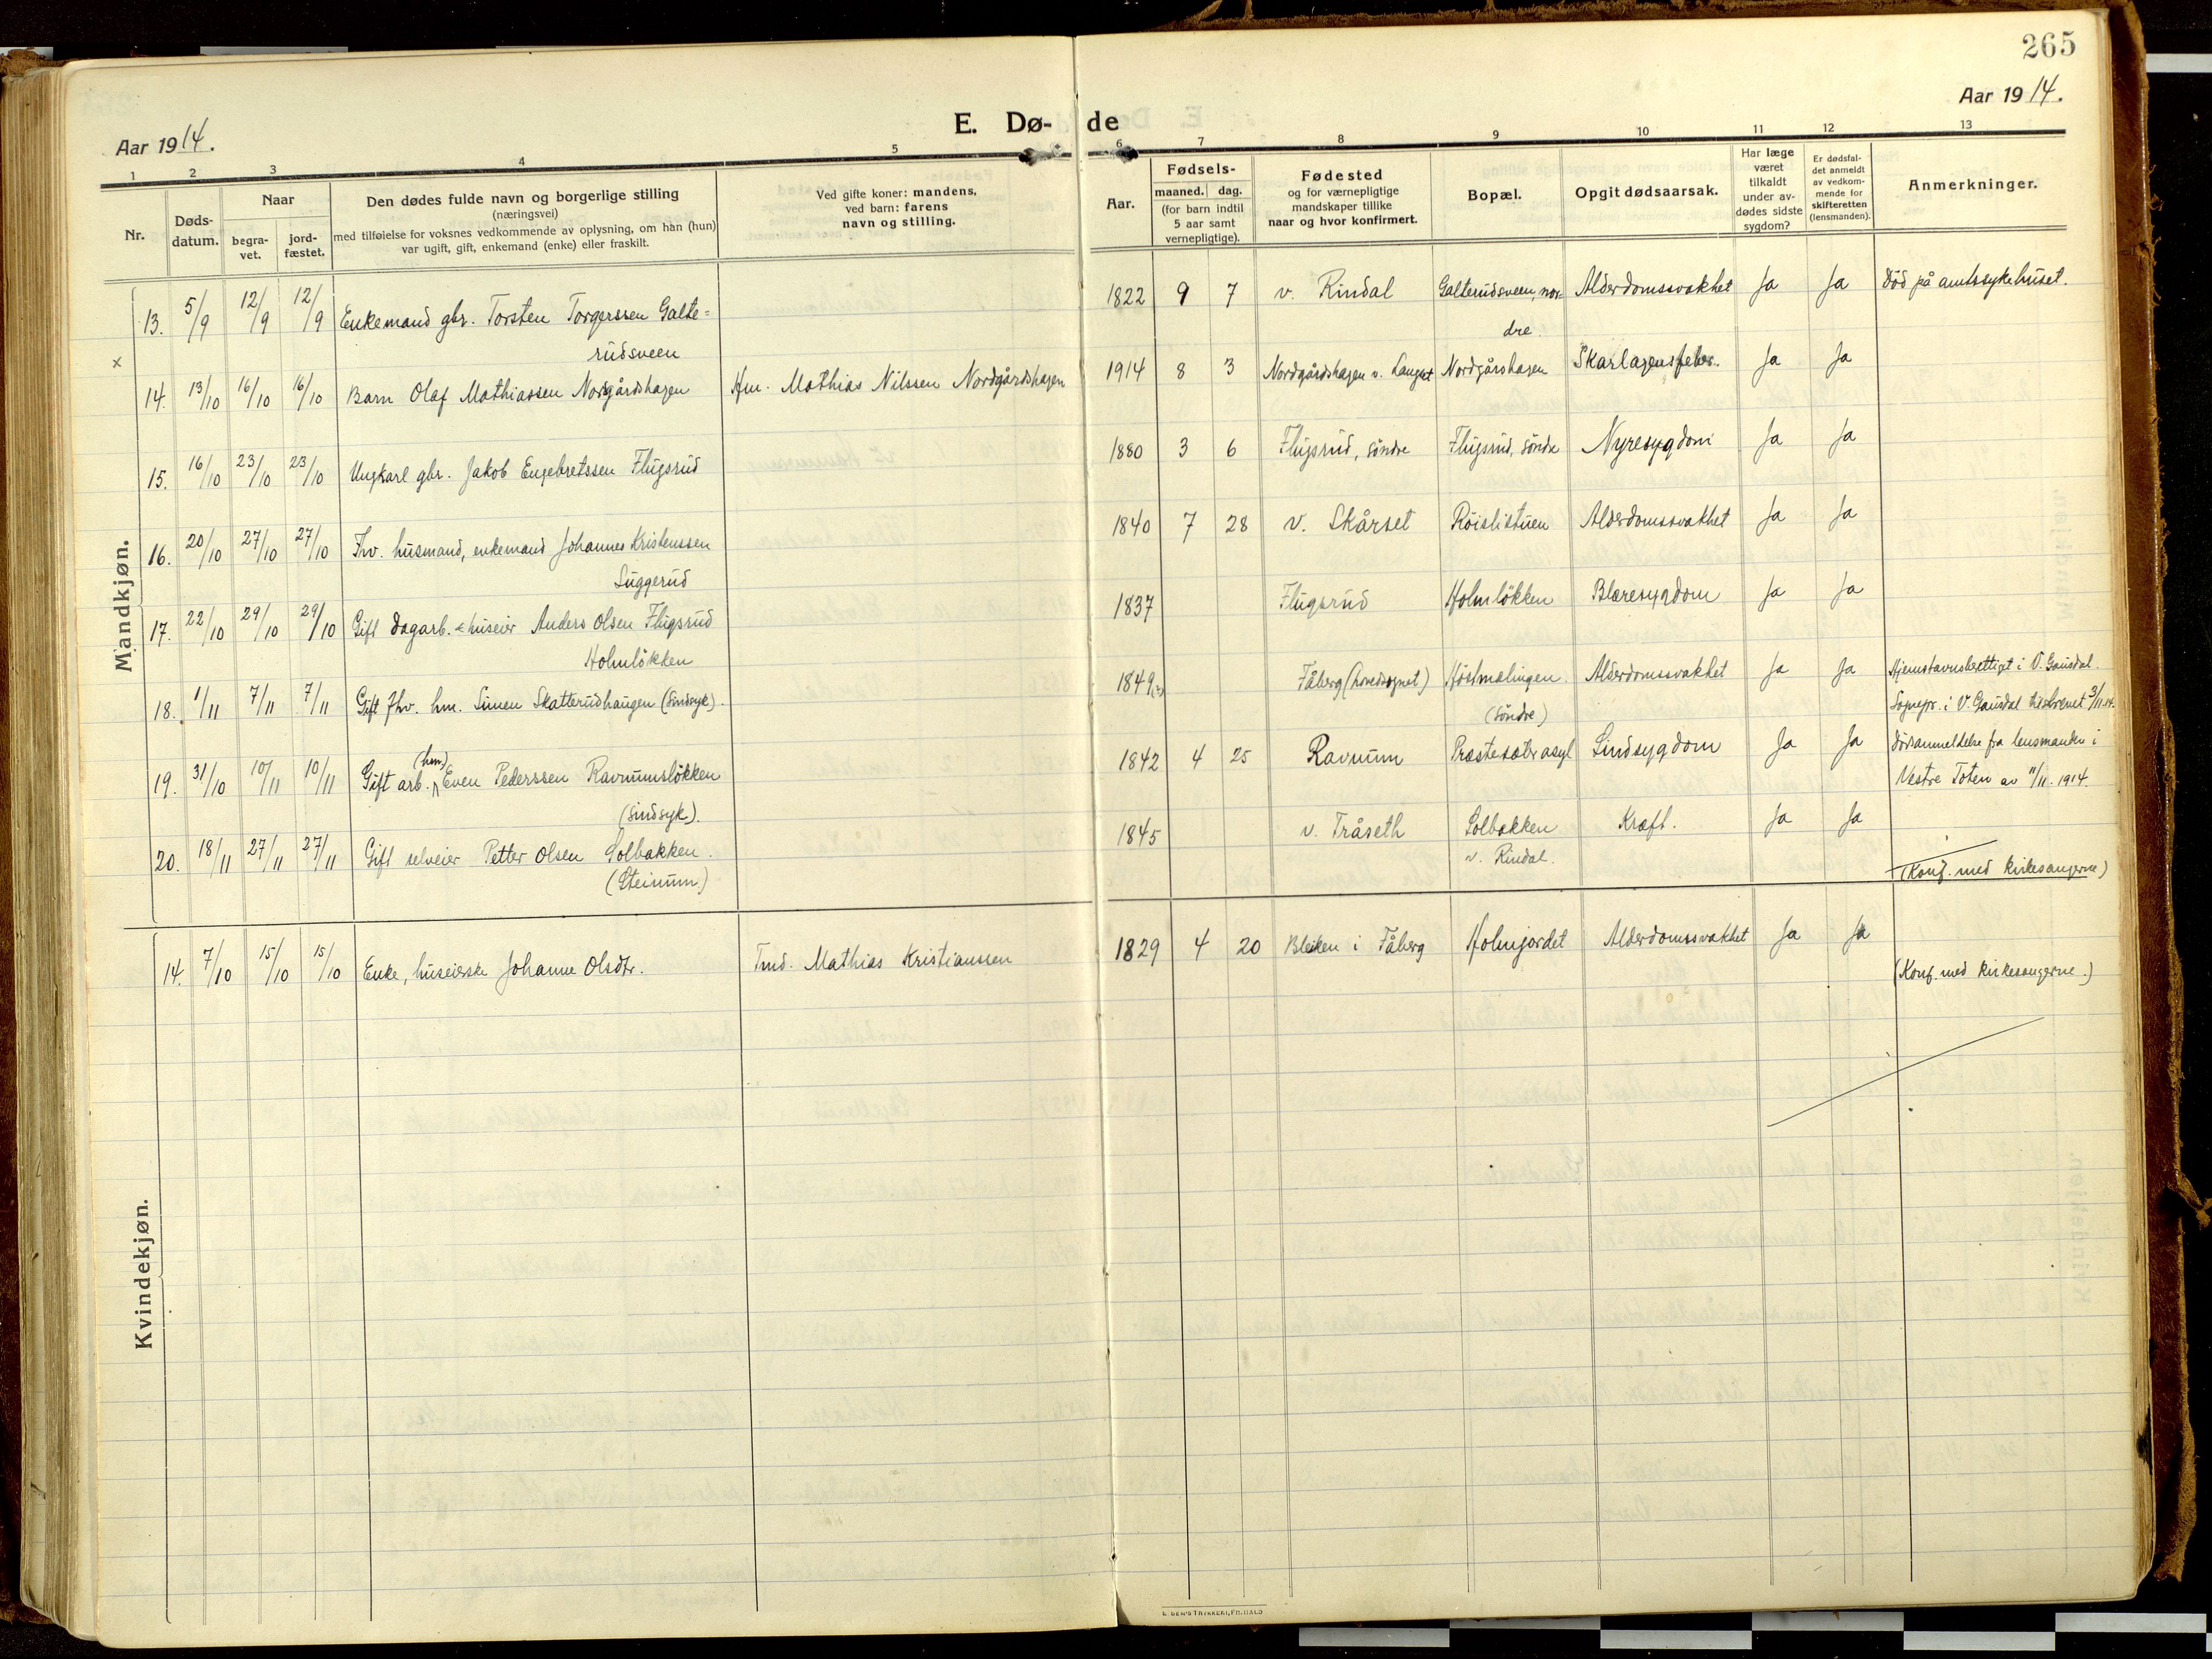 265
Aar 1914.
Aar 1914.
E. Dø-de
1 2 3 4 5 6 7 8 9 10 11 12 13
Nr.
Døds-datum.
Naar
begra-vet.
jord-fæstet.
Den dødes fulde navn og borgerlige stilling
(næringsvei)
med tilføielse for voksnes vedkommende av oplysning, om han (hun)
var ugift, gift, enkemand (enke) eller fraskilt.
Ved gifte koner: mandens,
ved barn: farens
navn og stilling.
Aar.
Fødsels-
maaned. dag.
(for barn indtil
5 aar samt
vernepligtige).
Fødested
og for værnepligtige
mandskaper tillike
naar og hvor konfirmert.
Bopæl.
Opgit dødsaarsak.
Har læge
været
tilkaldt
under av-
dødes sidste
sygdom?
Er dødsfal-
det anmeldt
av vedkom-
mende for
skifteretten
(lensmanden).
Anmerkninger.
Mandkjøn.
13. 5/9 12/9 12/9 Enkemand gbr. Torsten Torgerssen Galte= 1822 9 7 v. Rindal Galterudsveen, nor- Alderdomssvakhet Ja Ja Død på amtssykehuset.
rudsveen dre.
x
14. 13/10 16/10 16/10 Barn Olaf Mathiassen Nordgårdshagen Hm. Mathias Nilssen Nordgårdshagen 1914 8 3 Nordgårdshagen v. Langset Nordgårshagen Skarlagensfeber. Ja Ja
15. 16/10 23/10 23/10 Ungkarl gbr. Jakob Engebretssen Flugsrud 1880 3 6 Flugsrud, söndre Flugsrud, söndre Nyresygdom Ja Ja
16. 20/10 27/10 27/10 Fhv. husmand, enkemand Johannes Kristenssen 1840 7 28 v. Skårset Röislistuen Alderdomssvakhet Ja Ja
Luggerud
17. 22/10 29/10 29/10 Gift dagarb. & huseier Anders Olsen Flugsrud 1837 Flugsrud Holmlökken Blæresygdom Ja Ja
Holmlökken
18. 1/11 7/11 7/11 Gift fhv. hm. Simen Skatterudhaugen (sindsyk). 1849(?) Fåberg (hovedsognet) Höistmælingen Alderdomssvakhet Ja Ja Hjemstavnsberettiget i V. Gausdal.
(söndre) Sognepr. i V. Gausdal tilskrevet 3/11.14.
(hm)
19. 31/10 10/11 10/11 Gift arb. Even Pederssen Ravnumslökken 1842 4 25 Ravnum Præstesæter asyl Sindsygdom Ja Ja Dödsanmeldelse fra lensmanden i
(sindsyk). Vestre Toten av 11/11. 1914.
20. 18/11 27/11 27/11 Gift selveier Petter Olsen Solbakken. 1845 v. Tråseth Solbakken Kræft. Ja Ja
(Steinum) v. Rindal. (Konf. med kirkesangerne)
Kvindekjøn.
14. 7/10 15/10 15/10 Enke, huseierske Johanne Olsdtr. Tmd. Mathias Kristianssen 1829 4 20 Bleiken i Fåberg Holmjordet Alderdomssvakhet Ja Ja
(Konf. med kirkesangerne.)